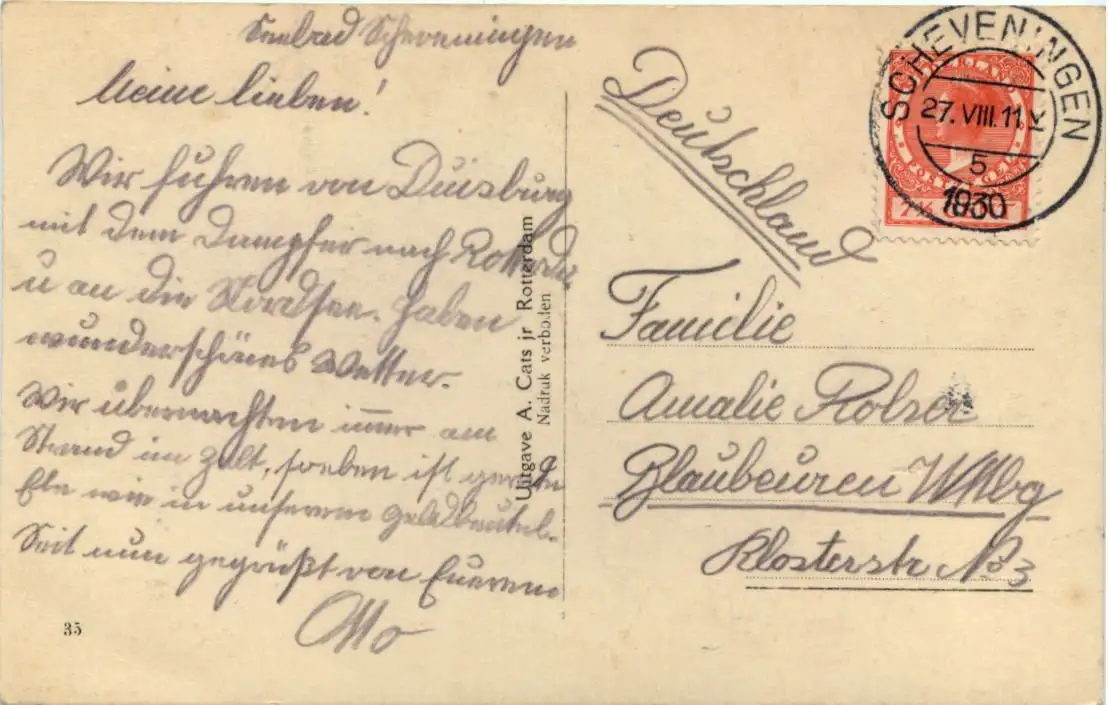 Seebad Scheveningen
Meine lieben!
Wir fuhren von Duisburg
mit dem Dampfer nach Rotterda
u an die Nordsee. Haben
wunderschönes Wetter.
Wir übernachten immer am
Strand im Zelt, soeben ist gerade
Ebe wie in unserem Geldbeutel.
Seit nun gegrüßt von Eurem
Otto
35
Uitgave A. Cats jr Rotterdam
Nadruk verboden
SCHEVENINGEN
27. VIII. 11 K
5
1930
Deutschland
Familie
Amalie
Blaubeuren Wttbg
Klosterstr No 3